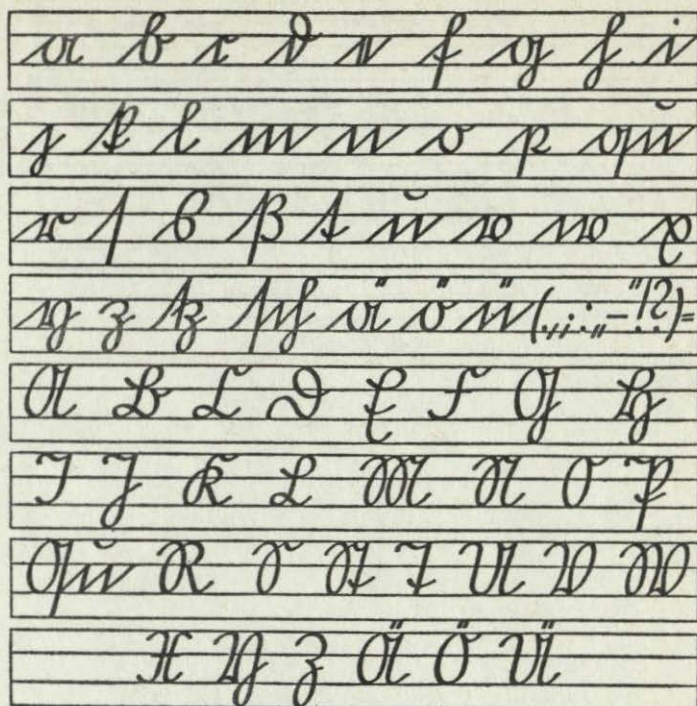 a b c d e f g h i
j k l m n o p qu
r ſ s ß t u v w x
y z tz ſch ä ö ü (.,;:„–“!?)=
A B C D E F G H
I J K L M N O P
Qu R S St T U V W
X Y Z Ä Ö Ü